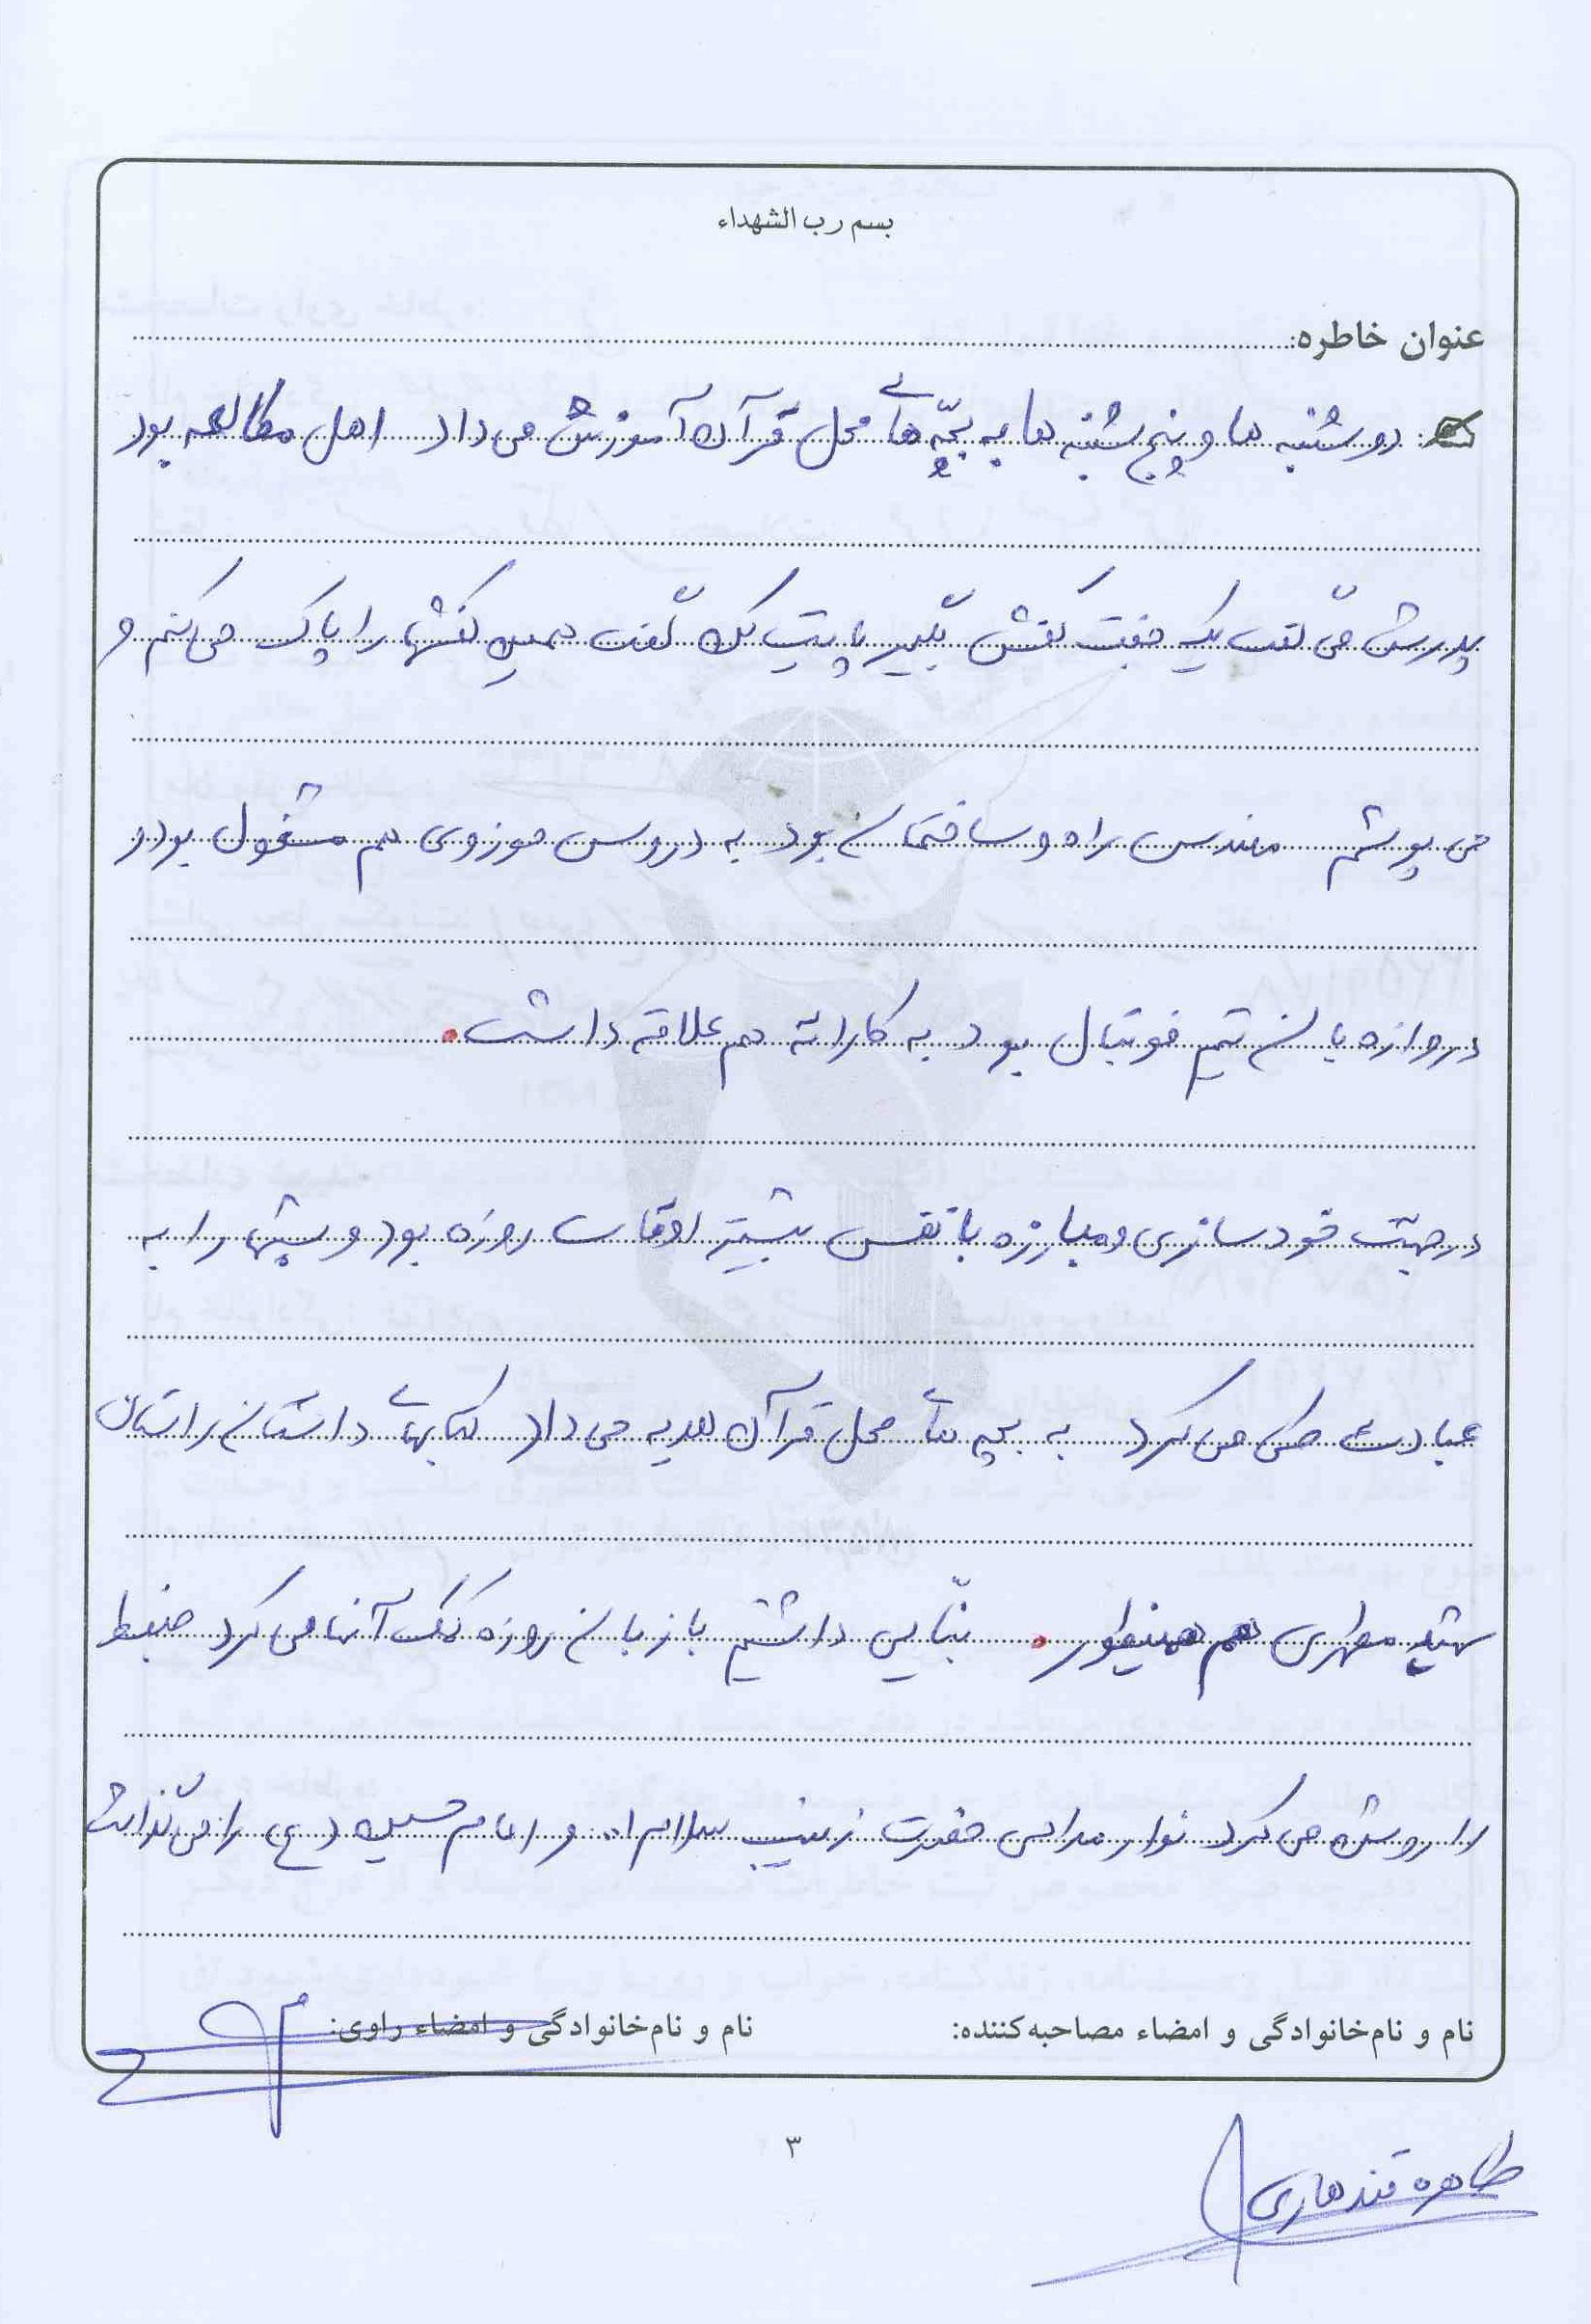 بسم رب الشهداء
عنوان خاطره:
دوشنبه ها و پنج شنبه ها به بچّه های محل قرآن آموزش می داد اهل مطالعه بود
پدرش می گفت یک جفت کفش بگیر با پیت گفت همین کفشها را پاک می کنم و
می پوشم مهندس راه و ساختمان بود به دروس حوزوی هم مشغول بود و
دروازه بان تیم فوتبال بود به کاراته هم علاقه داشت.
در جهت خودسازی و مبارزه با نفس بیشتر اوقات روزه بود و شبها را به
عبادت طی می کرد به بچه های محل قرآن هدیه می داد کتابهای داستان راستان
شهید مطهری هم همینطور. بنّایی داشتیم با زبان روزه کمک آنها می کرد ضبط
را روشن می کرد نوار مداحی حضرت زینب سلام ا.. و امام حسین (ع) را می گذاشت
نام و نام‌خانوادگی و امضاء مصاحبه‌کننده:
نام و نام‌خانوادگی و امضاء راوی:
۳
طاهره قندهاری